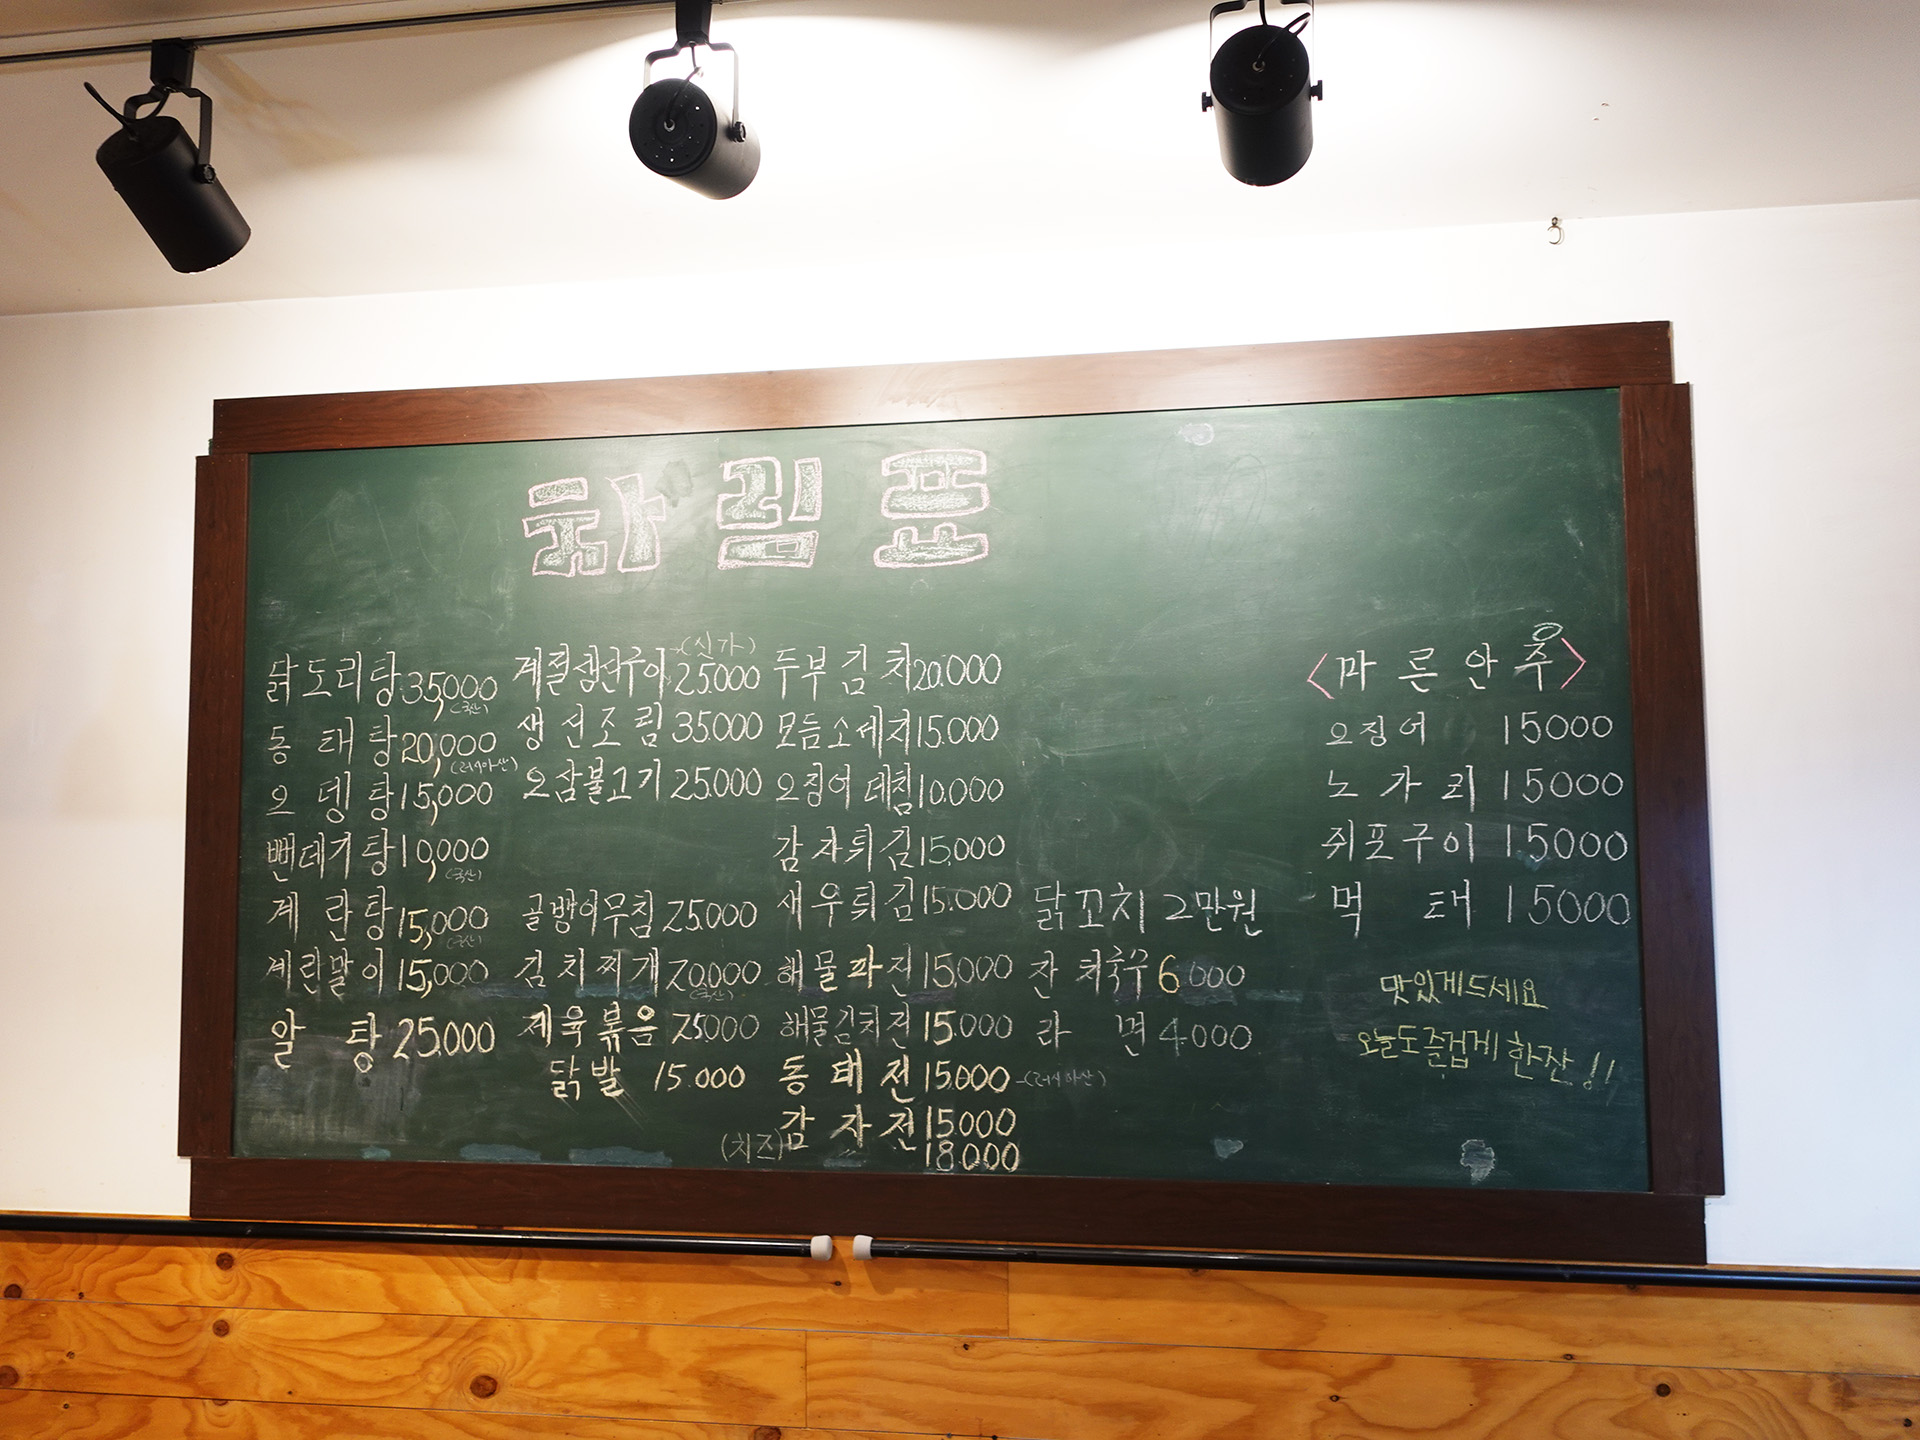 차림표
닭도리탕 35,000
(국산)
동태탕 20,000
(러시아산)
오뎅탕 15,000
뻔데기탕 10,000
(국산)
계란탕 15,000
(국산)
계란말이 15,000
알탕 25.000
계절생선구이 25.000
→(싯가)
생선조림 35.000
오삼불고기 25.000
골뱅이무침 25.000
김치찌개 20.000
(국산)
제육볶음 25.000
닭발 15.000
두부김치 20.000
모듬소세지 15.000
오징어데침 10.000
감자튀김 15.000
새우튀김 15.000
해물파전 15.000
해물김치전 15.000
동태전 15.000 -(러시아산)
감자전 15000
(치즈) 18.000
닭꼬치 2만원
잔치국수 6.000
라면 4.000
<마른안주>
오징어 15000
노가리 15000
쥐포구이 15000
먹태 15000
맛있게드세요
오늘도즐겁게 한잔!!